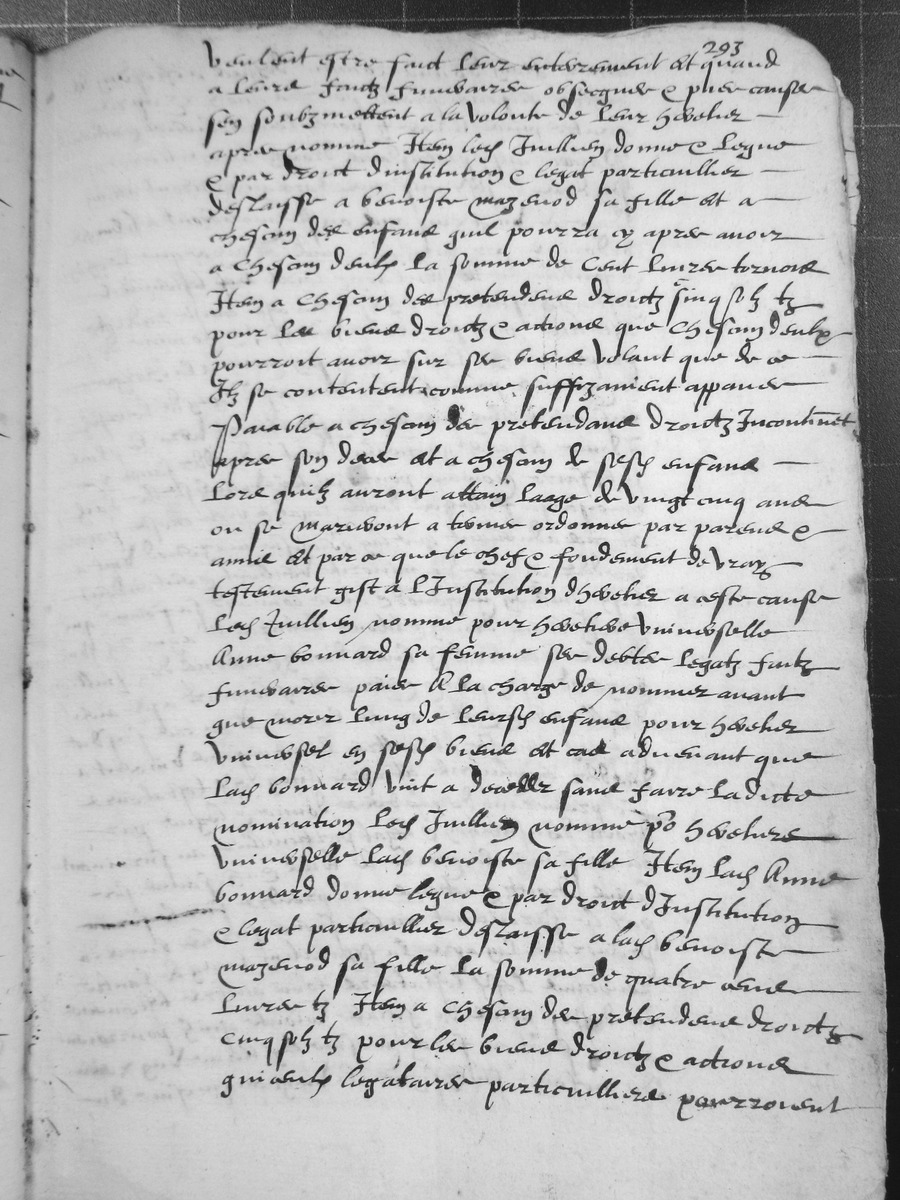 293
veulent estre faict leur enterrement et quand
a leurs fraictz funeraires obsecques & pies causes
sen soubzmettent a la volonte de leur heretier
apres nomme Item led Jullien donne & legue
& par droict dinstitution & legat particullier
deslaisse a benoiste mazenod sa fille et a
chescun des enfans quil pourra cy apres avoir
a chescun deulx la somme de cent livres tornois
Item a chescun des pretendens droictz sinq solz tz
pour les biens droictz & actions que chescun deulx
pourroit avoir sur ses biens volant que de ce
Ilz se contentent comme suffizament appanes
Paiable a chescun des pretendans droictz Incontinent
apres son deces et a chescun de sesd enfans
lors quilz auront attain laage de vingt cinq ans
ou se marieront a termes ordonnes par parens &
amis et par ce que le chef & fondement de vray
testement gist a l Institution dheretier a ceste cause
led Jullien nomme pour heretiere universelle
Anne bonnard sa femme ses debtes legatz fraitz
funeraires paies A la charge de nommer avant
que morir lung de leursd enfans pour heretier
universel en sesd biens et cas advenant que
lad bonnard vint a deceder sans faire ladicte
nomination led Jullien nomme po heretiere
universelle lad benoiste sa fille Item lad Anne
bonnard donne legue & par droict dInstitution
& legat particullier deslaisse a lad benoiste
mazenod sa fille la somme de quatre cens
livres tz Item a chescun des pretendens droictz
cinq solz tz pour les biens droictz & actions
qui ceulx legataires particulliers pourroient